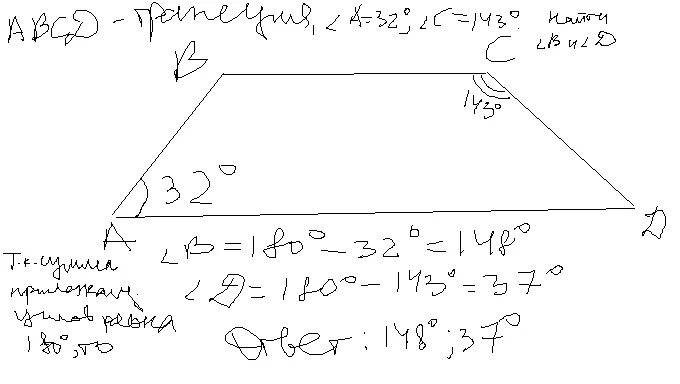 ABCD - трапеция, ∠A=32°, ∠C=143°. Найти
∠B и ∠D
B
C
143°
32°
A
D
Т.к. сумма
прилежащ.
углов равна
180°, то
∠B = 180° - 32° = 148°
∠D = 180° - 143° = 37°
Ответ: 148°; 37°